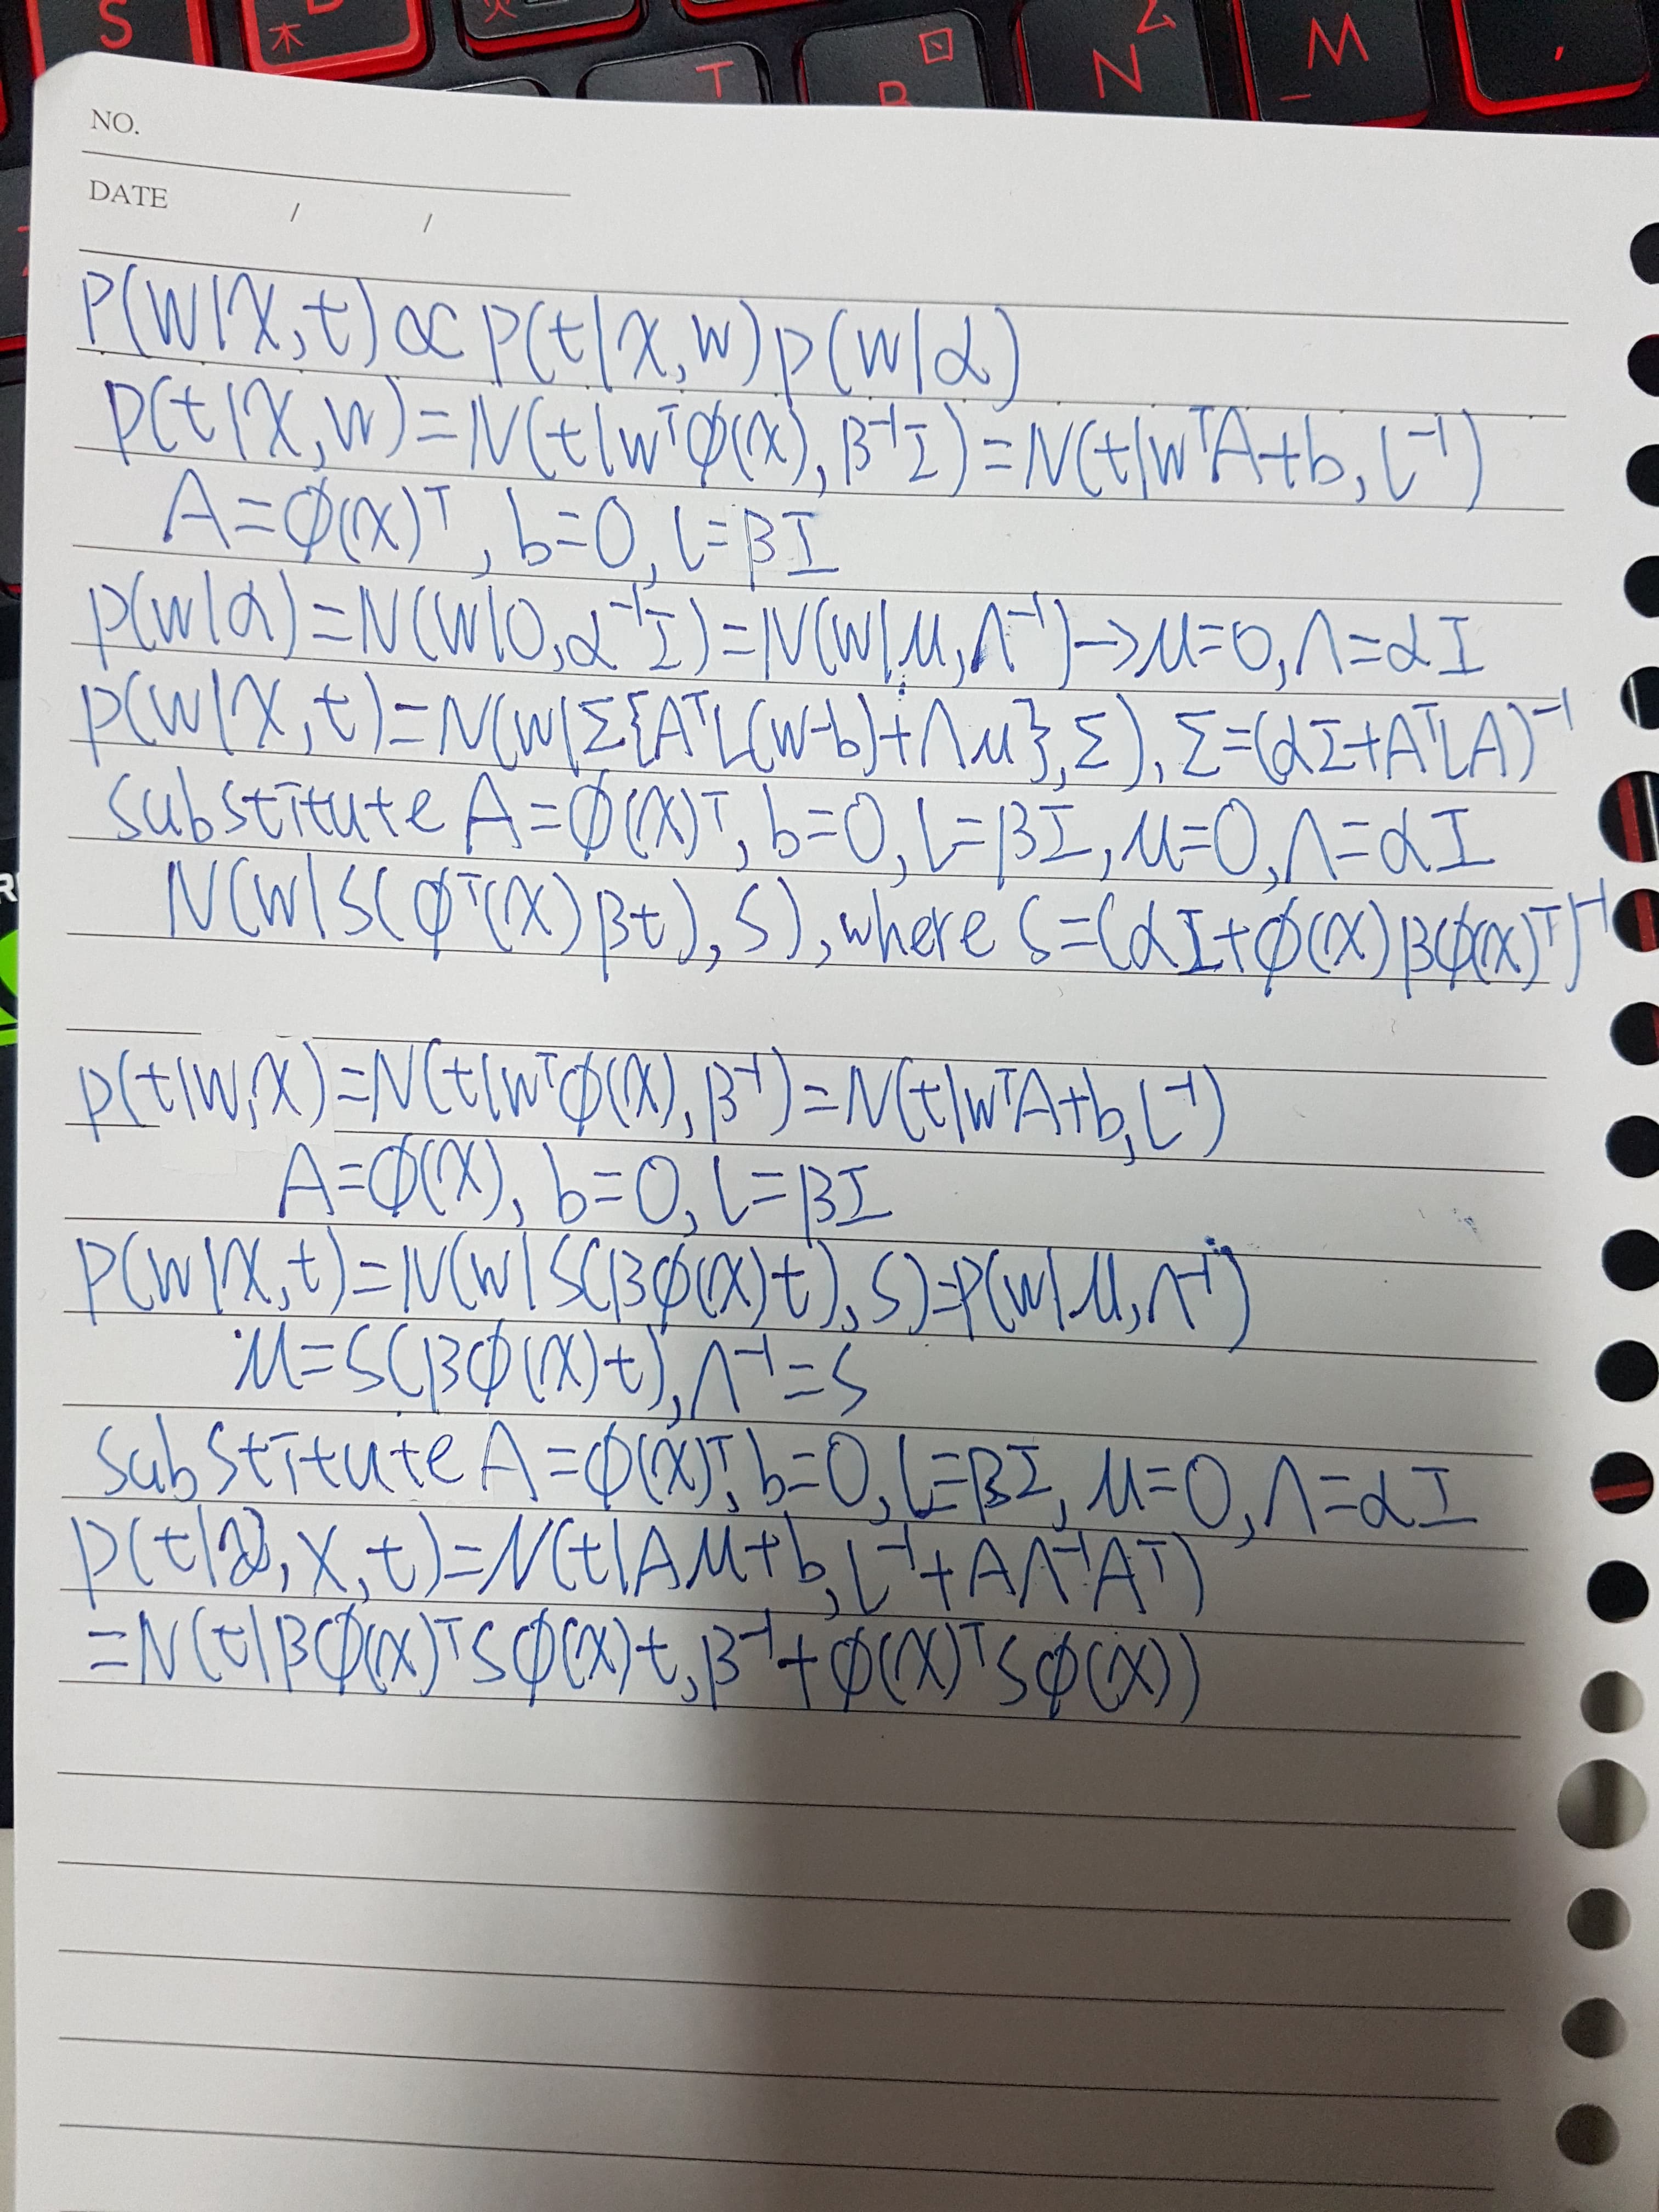 S
木
火
T
B
囗
N
ㄙ
M
,
NO.
DATE / /
P(W|X,t)∝P(t|X,W)P(W|α)
P(t|X,W)=N(t|Wᵀφ(X),β⁻¹I)=N(t|WᵀA+b,L⁻¹)
A=φ(X)ᵀ, b=0, L=βI
P(W|α)=N(W|0,α⁻¹I)=N(W|μ,Λ⁻¹)→μ=0,Λ=αI
P(W|X,t)=N(W|Σ{AᵀL(W-b)+Λμ},Σ), Σ=(αI+AᵀLA)⁻¹
substitute A=φ(X)ᵀ, b=0, L=βI, μ=0, Λ=αI
N(W|S(φᵀ(X)βt),S), where S=(αI+φ(X)βφ(X)ᵀ)⁻¹
P(t|W,X)=N(t|Wᵀφ(X),β⁻¹)=N(t|WᵀA+b,L⁻¹)
A=φ(X), b=0, L=βI
P(W|X,t)=N(W|S(βφ(X)t),S)=P(W|μ,Λ⁻¹)
μ=S(βφ(X)t),Λ⁻¹=S
substitute A=φ(X)ᵀ, b=0, L=βI, μ=0, Λ=αI
=N(t|βφ(X)ᵀSφ(X)t,β⁻¹+φ(X)ᵀSφ(X))